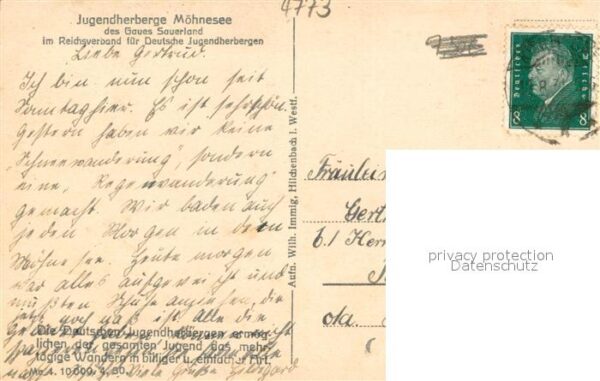 4773
Jugendherberge Möhnesee
des Gaues Sauerland
im Reichsverband für Deutsche Jugendherbergen
Liebe Gertrud.
Ich bin nun schon seit
Sonntag hier. Es ist sehr schön.
Gestern haben wir keine
"Schneewanderung", sondern
eine "Regenwanderung"
gemacht. Wir baden auch
jeden Morgen in dem
Möhnesee. Heute morgen
war alles aufgeweicht und
mußten Schuhe anziehen, die
jetzt noch naß ist. Alle die
Die Deutschen Jugendherbergen ermög-
lichen der gesamten Jugend das mehr-
tägige Wandern in billiger u. einfach. r Art.
10 000. 4. 30.
Viele Grüße
Aufn. Wilh. Immig, Hilchenbach i. Westf.
Deutsches Reich
8 8
Fräulein
Gert
b./
privacy protection
Datenschutz